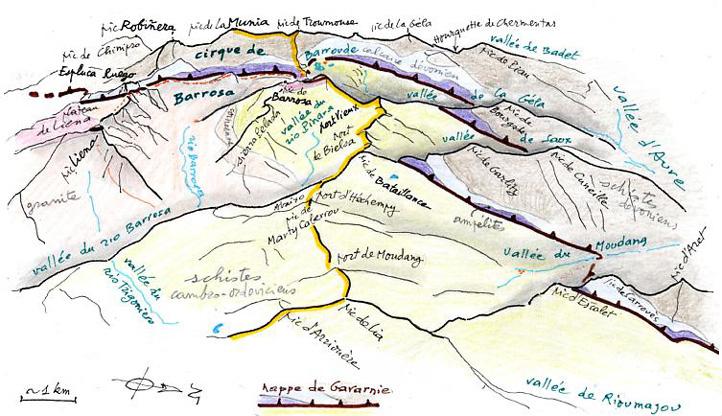 pic Robiñera
pic de la Munia
pic de Troumouse
pic de la Géla
Hourquette de Chermentas
pic de Chimipro
cirque de
Barrosa
Barroude
calcaire dévonien
pic de Piau
vallée de Badet
Espluca ruego
plateau
de Liena
pic de
Barrosa
vallée du
rio Pinara
Port Vieux
port
de Bielsa
vallée
de La Géla
pic de
vallée
de Saux
vallée d'Aure
pic Liena
granite
rio Barrosa
sierra Pelada
pic de
Bataillance
pic de Garlitz
pic de Caneille
schistes
dévoniens
ampélites
vallée du rio Barrosa
port d'Héchempy
pic de
Marty Caberrou
port de Moudang
vallée du
Moudang
pic d'Aret
vallée du
rio Trigoniero
schistes
cambro-ordoviciens
pic de Lia
pic d'Arriouère
pic d'Estalet
vallée de Rioumajou
~1 km
N
nappe de Gavarnie